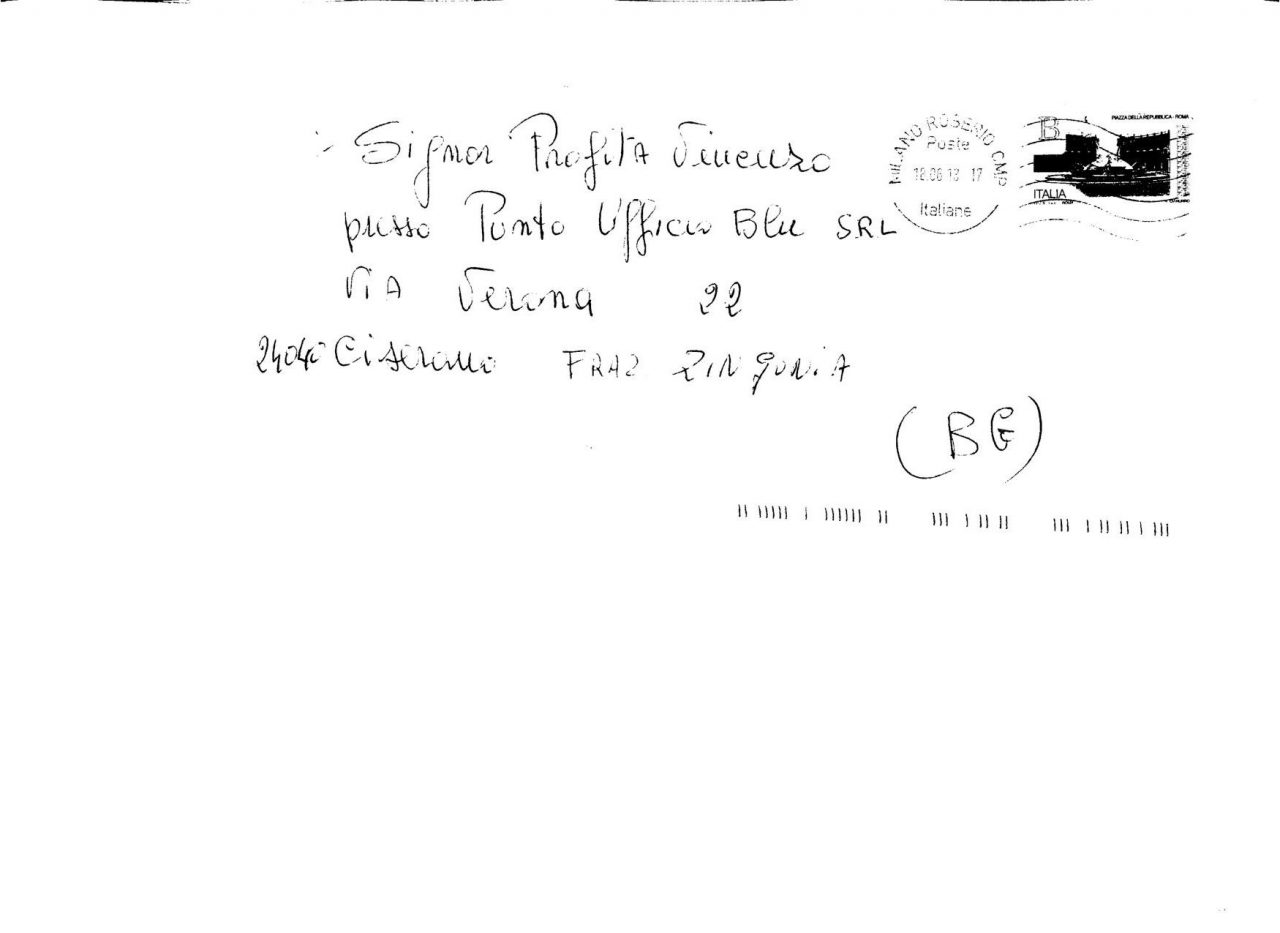 Signor Profita Vincenzo
presso Punto Ufficio Blu SRL
Via Verona 22
24040 Ciserano FRAZ ZINGONIA
(BG)
MILANO ROSERIO CMP
Poste
18.06.13 17
Italiane
B
PIAZZA DELLA REPUBBLICA - ROMA
ITALIA